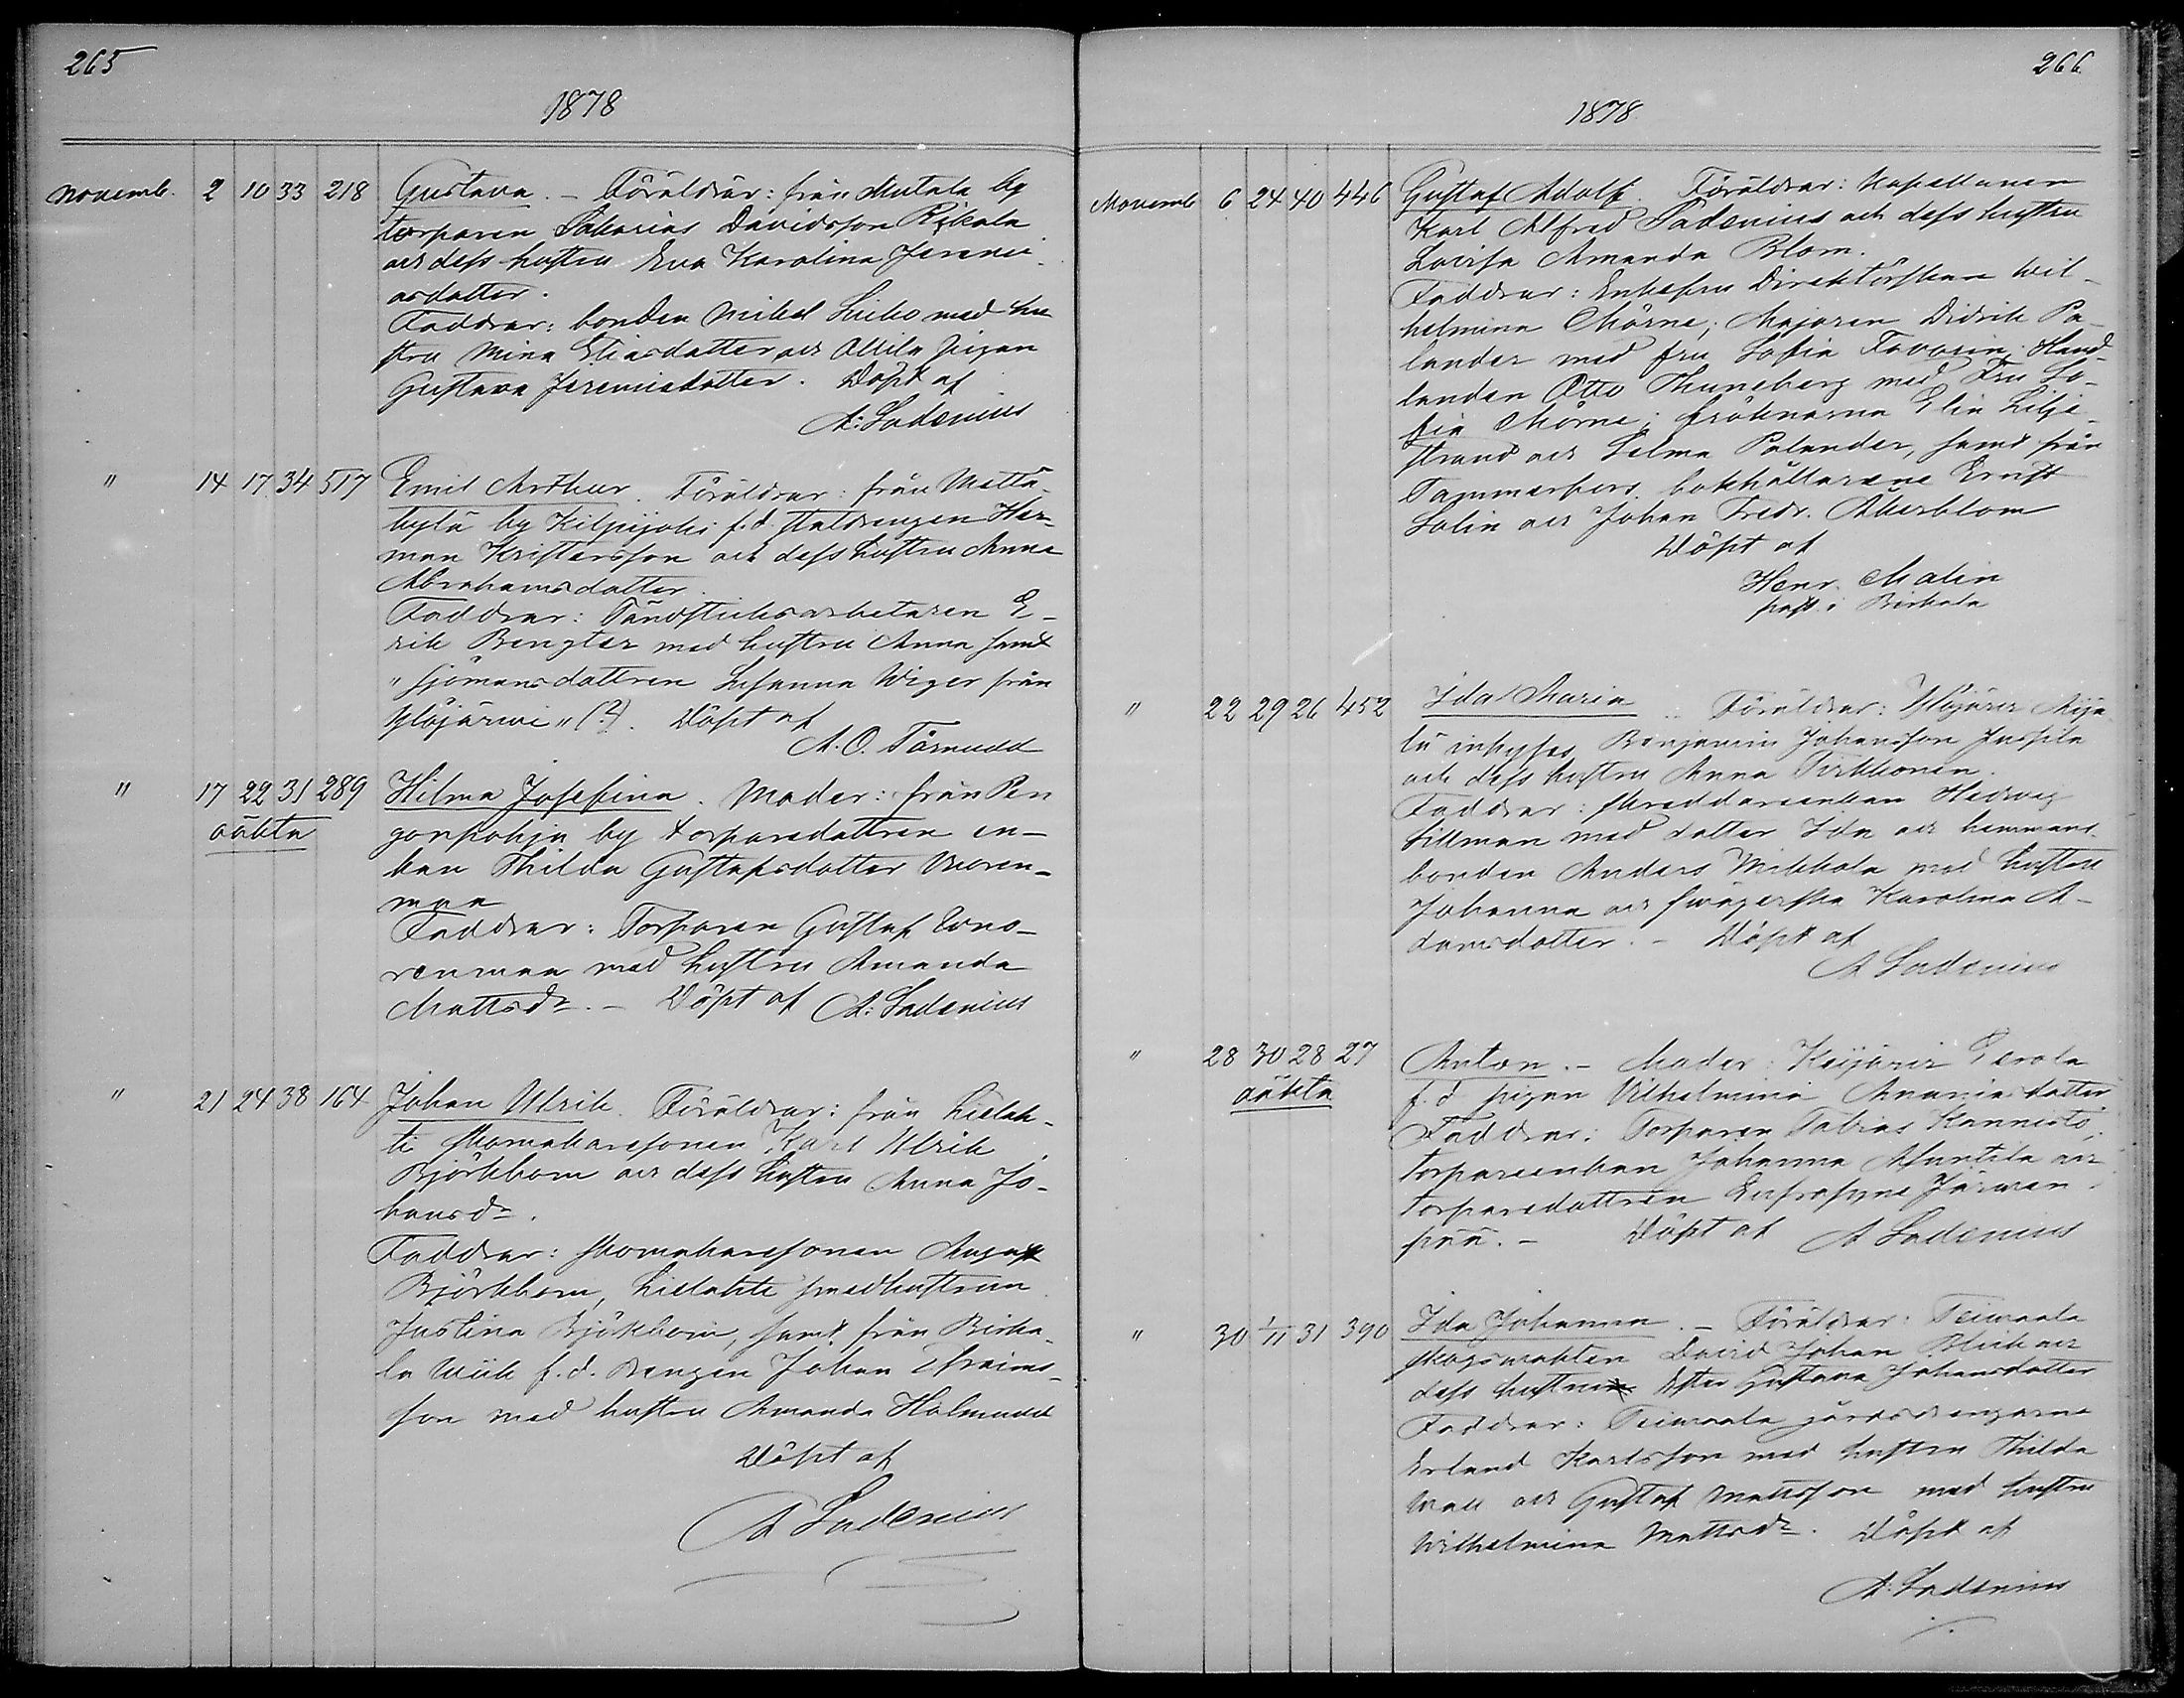 265
1878
Novemb. 2 10 33 218 Gustava. – Föräldrar: från Mutala by
torparen Sakarias Davidsson Rikala
och dess hustru Eva Karolina Jeremi-
asdotter.
Faddrar: bonden Mikel Liuko med hu
stru Mina Eliasdotter och Attila pigan
Gustava Jeremiedotter. Döpt af
A: Ladenius
" 14 17 34 517 Emil Arthur. Föräldrar: från Mattä-
bylä by Kilpijoki f.d. Stalldrengen Her-
man Kristersson och dess hustru Anna
Abrahamsdotter.
Faddrar: Tändsticksarbetaren E-
rik Bengter med hustru Anna samt
"sjömansdottren Susanna Wiger från
Ylöjärwi" (?). Döpt af
A. O. Törnudd
" 17 22 31 289 Hilma Josefina. Moder: från Pen
oäkta gonpohja by torparedottren en-
kan Thilda Gustafsdotter Vuoren-
maa
Faddrar: Torparen Gustaf Vuo-
renmaa med hustru Amanda
Mattsdr. – Döpt af A: Ladenius
" 21 24 38 164 Johan Ulrik. Föräldrar: från Lielah-
ti skomakaresonen Karl Ulrik
Björkbom och dess hustru Anna Jo-
hansdr.
Faddrar: skomakaresonen August
Björkbom, Lielahti smedhustrun
Justina Björkbom, samt från Birka-
la Wiik f.d. Drengen Johan Efraims-
son med hustru Amanda Holmudd
Döpt af
A Ladenius
266
1878
Novemb 6 24 40 446 Gustaf Adolf. Föräldrar: Kapellanen
Karl Alfred Ladenius och dess hustru
Lovisa Amanda Blom.
Faddrar: Enkefru Direktörskan Wil-
helmina Mörne; Majoren Didrik Pa-
lander med fru Sofia Favorin; Hand-
landen Otto Thuneberg med Fru So-
fia Mörne; fröknarna Elin Lilje-
strand och Selma Palander, samt från
Tammerfors bokhållarene Ernst
Salin och Johan Fredr. Åkerblom
Döpt af
Henr. Malin
past. i Birkala
" 22 29 26 452 Ida Maria Föräldrar: Ylöjärvi Mija
lä inhyses Benjamin Johansson Jussila
och dess hustru Anna Pirkkonen.
Faddrar: skreddareenkan Hedvig
Sillman med dotter Ida och hemmans
bonden Anders Mikkola med hustru
Johanna och swägerska Karolina A-
damsdotter. – Döpt af
A Ladenius
" 28 30 28 27 Anton. – Moder: Keijärvi Eerola
oäkta f.d pigan Vilhelmina Ananiedotter
Faddrar: Torparen Tobias Kannisto,
torpareenkan Johanna Anttila och
torparedottren Eufrosyne Järwen-
pää. – Döpt af A Ladenius
" 30 1/11 31 390 Ida Johanna. – Föräldrar: Teiwaala
skogswakten David Johan Blick och
dess hustru Ester Gustava Johansdotter
Faddrar: Teiwaala gårdsdrengarne
Erland Karlsson med hustru Thilda
Wall och Gustaf Mattsson med hustru
Wilhelmina Mattsdr. Döpt af
A. Ladenius